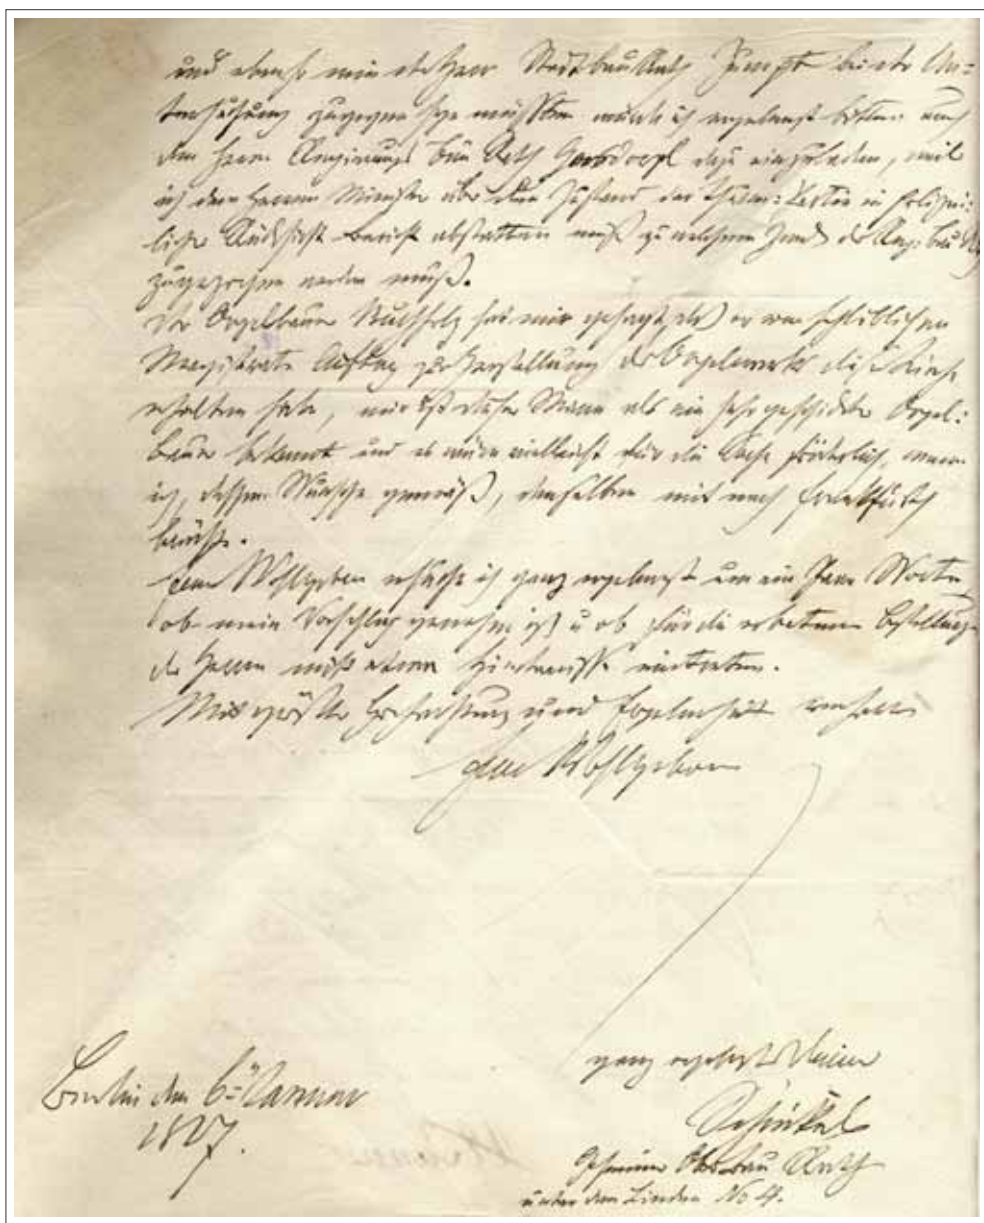 und ebenso wie der Herr Stadtbau Rath bei der Un=
tersuchung zugegen seyn müssten würde ich ergebenst bitten auch
den Herrn Regierungs Bau Rath dazu einzuladen, weil
ich dem Herren Minister über den Zustand der in polizei=
licher Rücksicht Bericht abstatten muß zu welchem Zweck der Reg. Bau R
zugezogen werden muß.
Der Orgelbauer Buchholz hat mir gesagt daß er vom hochlöblichen
Magistrate Auftrag zur Herstellung des Orgelwerks dieser Kirche
erhalten habe, mir ist dieser Mann als ein sehr geschickter Orgel=
bauer bekannt und es wäre vielleicht für die Sache förderlich, wenn
ich, dessen Wunsche gemäß, denselben mit nach Frankfurth
brächte.
Euer Wohlgeboren ersuche ich ganz ergebenst um ein Paar Worte
ob mein Vorschlag genehm ist u ob für die erbetene Bestellung
der Herren nicht etwa Hindernisse eintreten.
Mit größter Hochachtung und Ergebenheit verharre
Euer Wohlgeboren
ganz ergebenster Diener
Schinkel
Geheimer Ober Bau Rath
unter den Linden No 4.
Berlin den 6= Januar
1827.